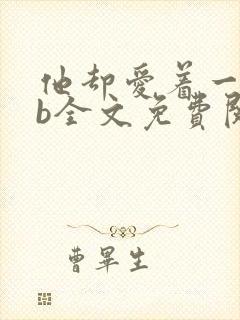 他却爱着一
b全文免费阅
曹毕生